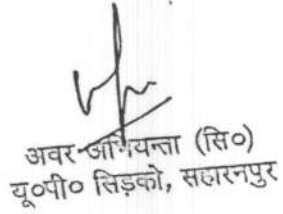 अवर अभियन्ता (सि०)
यू०पी० सिड़को, सहारनपुर